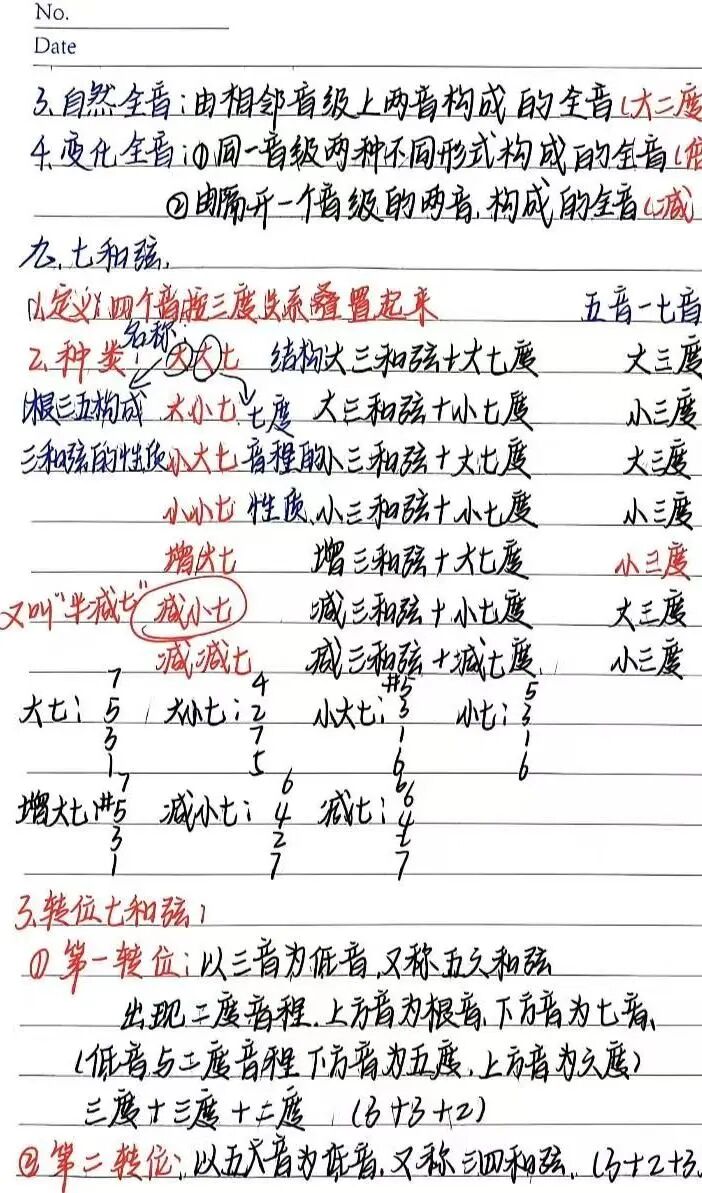 No.
Date
3.自然全音:由相邻音级上两音构成的全音(大二度
4.变化全音:①同一音级两种不同形式构成的全音(倍
②由隔开一个音级的两音.构成的全音(减
九.七和弦.
1.定义:四个音按三度关系叠置起来 五音-七音
2.种类: 名称 大大七 结构大三和弦+大七度 大三度
根三五构成 大小七 七度 大三和弦+小七度 小三度
三和弦的性质小大七 音程的小三和弦+大七度 大三度
小小七 性质.小三和弦+小七度 小三度
增大七 增三和弦+大七度 小三度
又叫"半减七" 减小七 减三和弦+小七度 大三度
减减七 减三和弦+减七度. 小三度
7 4 #5 5
大七: 5 大小七: 2 小大七: 3 小七: 3
3 7 1 1
1 5 6 6
7 6 b6
增大七:#5 减小七: 4 减七: 4
3 2 2
1 7 7
3.转位七和弦:
①第一转位:以三音为低音.又称五六和弦
出现二度音程.上方音为根音.下方音为七音.
(低音与二度音程下方音为五度.上方音为六度)
三度+三度+二度 (3+3+2)
②第二转位:以五音为低音.又称三四和弦. (3+2+3